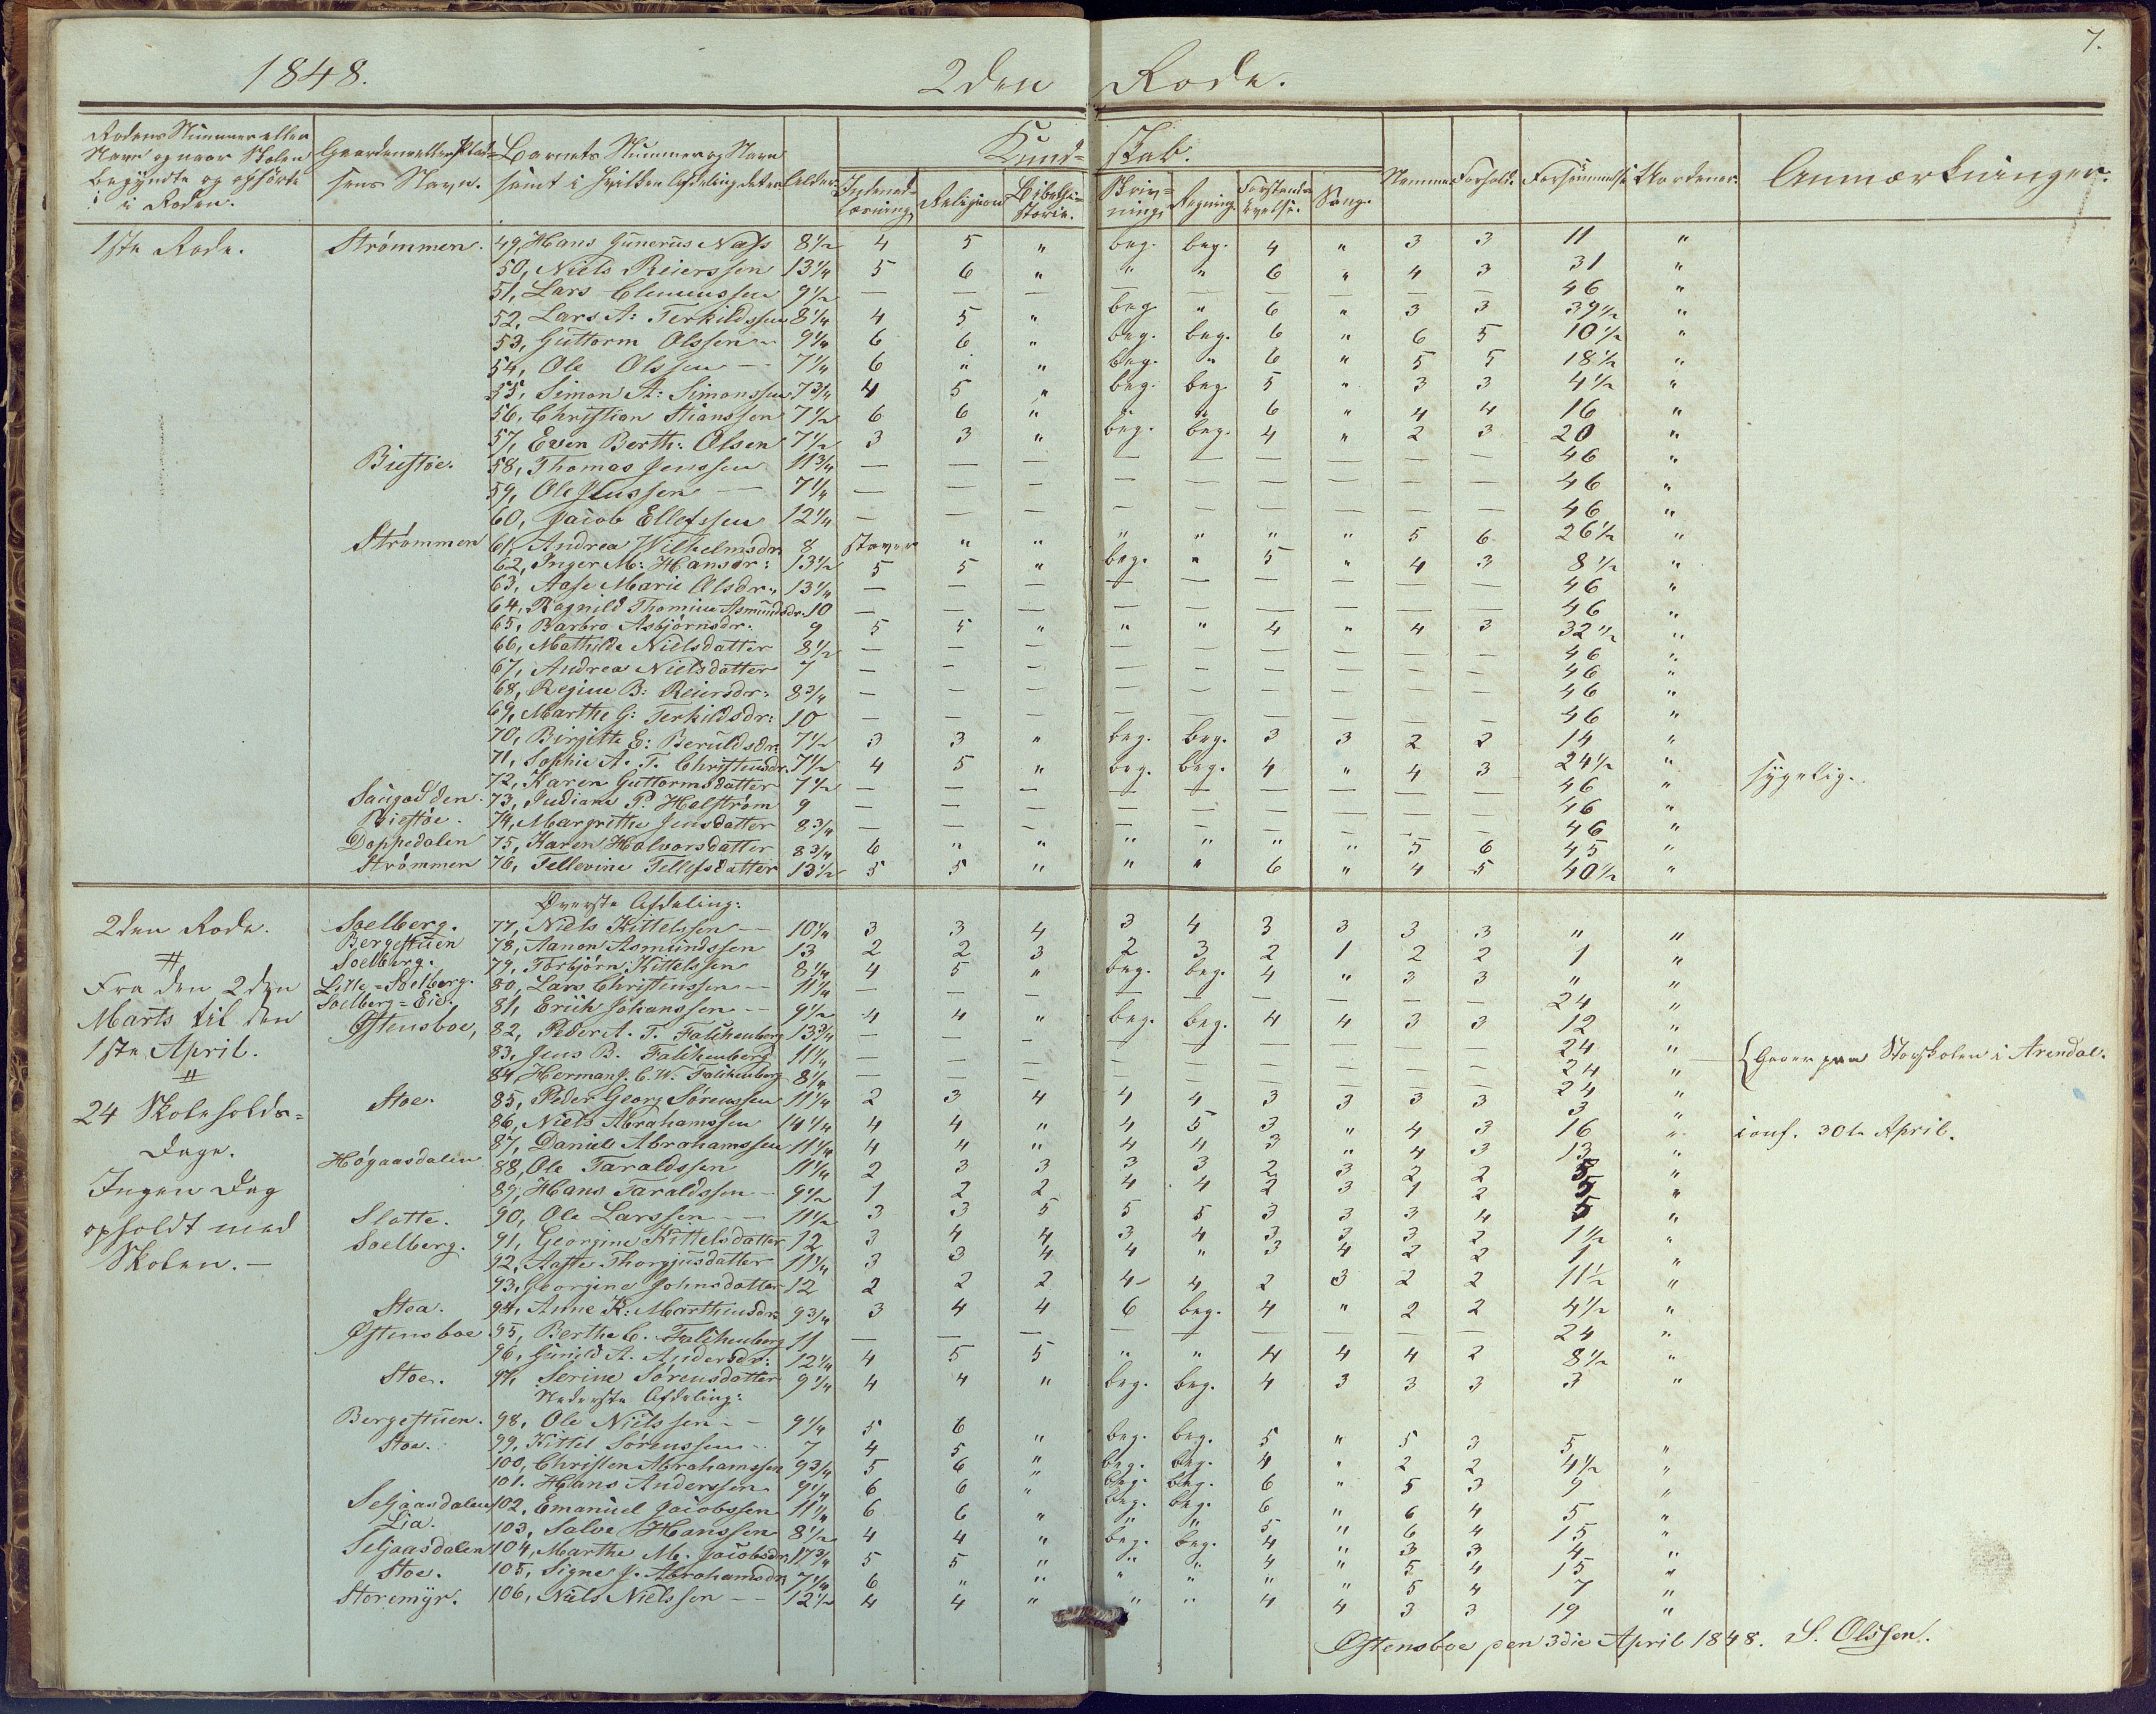 7.
1848. 2den Rode.
Rodens Nummer eller Navn og naar Skolen begyndte og ophørte i Roden. Gaardens eller Pladsens Navn. Barnets Nummer og Navn samt i hvilken Afdeling det er Alder. Kundskab. Nemme Forhold. Forsømmelse Uordener. Anmærkninger.
Indenadlæsning Religion Bibelhistorie. Skrivning Regning. Forstandsøvelse. Sang.
1ste Rode. Strømmen. 49, Hans Gunerius Næss 8½ 4 5 " beg. beg. 4 " 3 3 11 "
50, Niels Reierssen 13¼ 5 6 " " " 6 " 4 3 31 "
51, Lars Clemenssen 9½ — — — — — — — — — 46 "
52, Lars A: Terkildssen 8¼ 4 5 " beg. " 6 " 3 3 39½ "
53, Guttorm Olssen 9¼ 6 6 " beg. beg. 6 " 6 5 10½ "
54, Ole Olssen — 7¼ 6 " " beg. " 6 " 5 5 18½ "
55, Simon A: Simonssen 7¾ 4 5 " beg. beg. 5 " 3 3 4½ "
56, Christian Stianssen 7½ 6 6 " " " 6 " 4 4 16 "
57, Even Berth: Olsen 7½ 3 3 " beg. beg. 4 " 2 3 20 "
Biestøe. 58, Thomas Jenssen 11¾ — — — — — — — — — 46 "
59, Ole — 7¼ — — — — — — — — — 46 "
60, Jacob Ellefssen 12¼ — — — — — — — — — 46 "
Strømmen 61, Andrea Wilhelmsdr. 8 staver " " " " " " 5 6 26½ "
62, Inger M: Hansdr: 13½ 5 5 " beg. " 5 " 4 3 8½ "
63, Aase Marie Olsdr: 13¼ — — — — — — — — — 46 "
64, Ragnild Thomine Asmundsdr. 10 — — — — — — — — — 46 "
65, Barbro Asbjørnsdr: 9 5 5 " " " 4 " 4 3 32½ "
66, Mathilde Nielsdatter 8½ — — — — — — — — — 46 "
67, Andrea Nielsdatter 7 — — — — — — — — — 46 "
68, Regine B: Reiersdr: 8¾ — — — — — — — — — 46 "
69, Marthe G: Terkildsdr: 10 — — — — — — — — — 46 "
70, Birgitte E: Beruldsdr. 7½ 3 3 " beg. beg. 3 3 2 2 14 "
71, Sophie A. T. Christensdr. 7½ 4 5 " beg. beg. 4 " 4 3 24½ " sygelig.
72, Karen Guttormsdatter 7½ — — — — — — — — — 46 "
73, Indiane P. Holstrøm 9 — — — — — — — — — 46 "
Biestøe. 74, Margrethe Jensdatter 8¾ — — — — — — — — — 46 "
Doppedalen 75, Karen Halvorsdatter 8¾ 6 " " " " " " 5 6 45 "
Strømmen 76, Tellevine Tellefsdatter 13½ 5 5 " " " 6 " 4 5 40½ "
Øverste Afdeling:
2den Rode. Soelberg. 77, Niels Kittelssen — 10¼ 3 3 4 3 4 3 3 3 3 " "
Bergestuen 78, Aanon Asmundssen 13 2 2 3 2 3 2 1 2 2 1 "
Soelberg. 79, Torbjørn Kittelssen 8¼ 4 5 " beg. beg. 4 " 3 3 " "
Fra den 2den Lille-Soelberg. 80, Lars Christenssen — 11¼ — — — — — — — — — 24 "
Marts til den Soelberg-Eie. 81, Erich Johanssen — 9½ 4 4 " beg. beg. 4 4 3 3 12 "
1ste April. Østensboe, 82, Peder A. T. Falchenberg 13¾ — — — — — — — — — 24 "
83, Jens B. Falchenberg 11¼ — — — — — — — — — 24 " Gaaer paa Storskolen i Arendal.
84, Herman J. C. W. Falchenberg 8¼ — — — — — — — — — 24 "
24 Skoleholds- Stoe. 85, Peder Georg Sørenssen 11¼ 2 3 4 4 4 3 3 3 3 3 "
Dage. 86, Niels Abrahamssen 14¼ 4 4 " 4 5 3 " 4 3 16 " conf. 30te April.
87, Daniel Abrahamssen 11¼ 4 4 " 4 4 3 " 4 3 13 "
Høgaasdalen 88, Ole Taraldssen 11¼ 2 3 3 3 3 2 3 2 2 5 "
Ingen Dag 89, Hans Taraldssen — 9½ 1 2 2 4 4 2 3 1 2 5 "
opholdt med Slotte. 90, Ole Larssen — 11½ 3 3 5 5 5 3 3 3 4 5 "
Skolen. — Soelberg. 91, Georgine Kittelsdatter 12 3 4 4 3 4 3 3 3 2 1½ "
92, Aaste Thorgjusdatter 11¼ 3 3 4 4 " 3 4 2 2 1 "
93, Georgine Johnsdatter 12 2 2 2 4 4 2 3 2 2 11½ "
Stoa. 94, Anne K: Marthinsdr. 9¾ 3 4 4 6 beg. 4 " 2 2 4½ "
Østensboe 95, Berthe C. Falchenberg 11 — — — — — — — — — 24 "
96, Gunild A. Andersdr: 12¼ 4 5 5 " " 4 4 4 2 8½ "
Stoe. 97, Serine Sørensdatter 9¼ 4 4 " beg. beg. 4 3 3 3 3 "
Nederste Afdeling:
Bergestuen. 98, Ole Nielssen — 9¼ 5 6 " beg. beg. 5 " 5 3 5 "
Stoe. 99, Kittel Sørenssen 7 4 5 " beg. beg. 4 " 2 2 4½ "
100, Christen Abrahamssen 9¾ 5 6 " beg. beg. 6 " 5 3 9 "
101. Hans Anderssen 9¼ 6 6 " beg. beg. 6 " 6 4 5 "
Seljaasdalen 102, Emanuel Jacobssen 11¼ 6 6 " " " 5 " 6 4 15 "
Lia. 103, Salve Hanssen 8½ 4 4 " beg. beg. 4 " 3 3 4 "
Seljaasdalen 104, Marthe M. Jacobsdr. 5 5 " " " 4 " 5 4 15 "
Stoe. 105, Signe J. Abrahamsdr. 7¼ 6 " " " " " " 5 4 7 "
Storemyr. 106, Niels Nielssen — 12½ 4 4 " " " 4 4 3 3 19 "
Østensboe den 3die April 1848. S. Olssen.